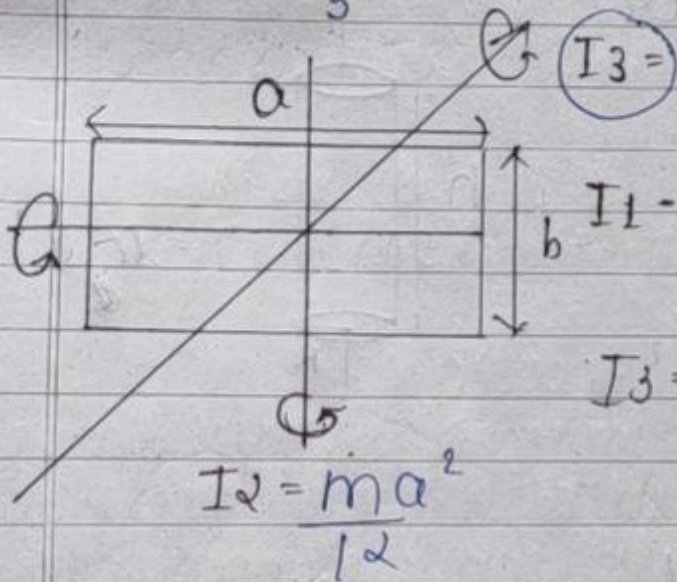 a
I3 =
I1 -
b
I3 =
I2 = ma²
12